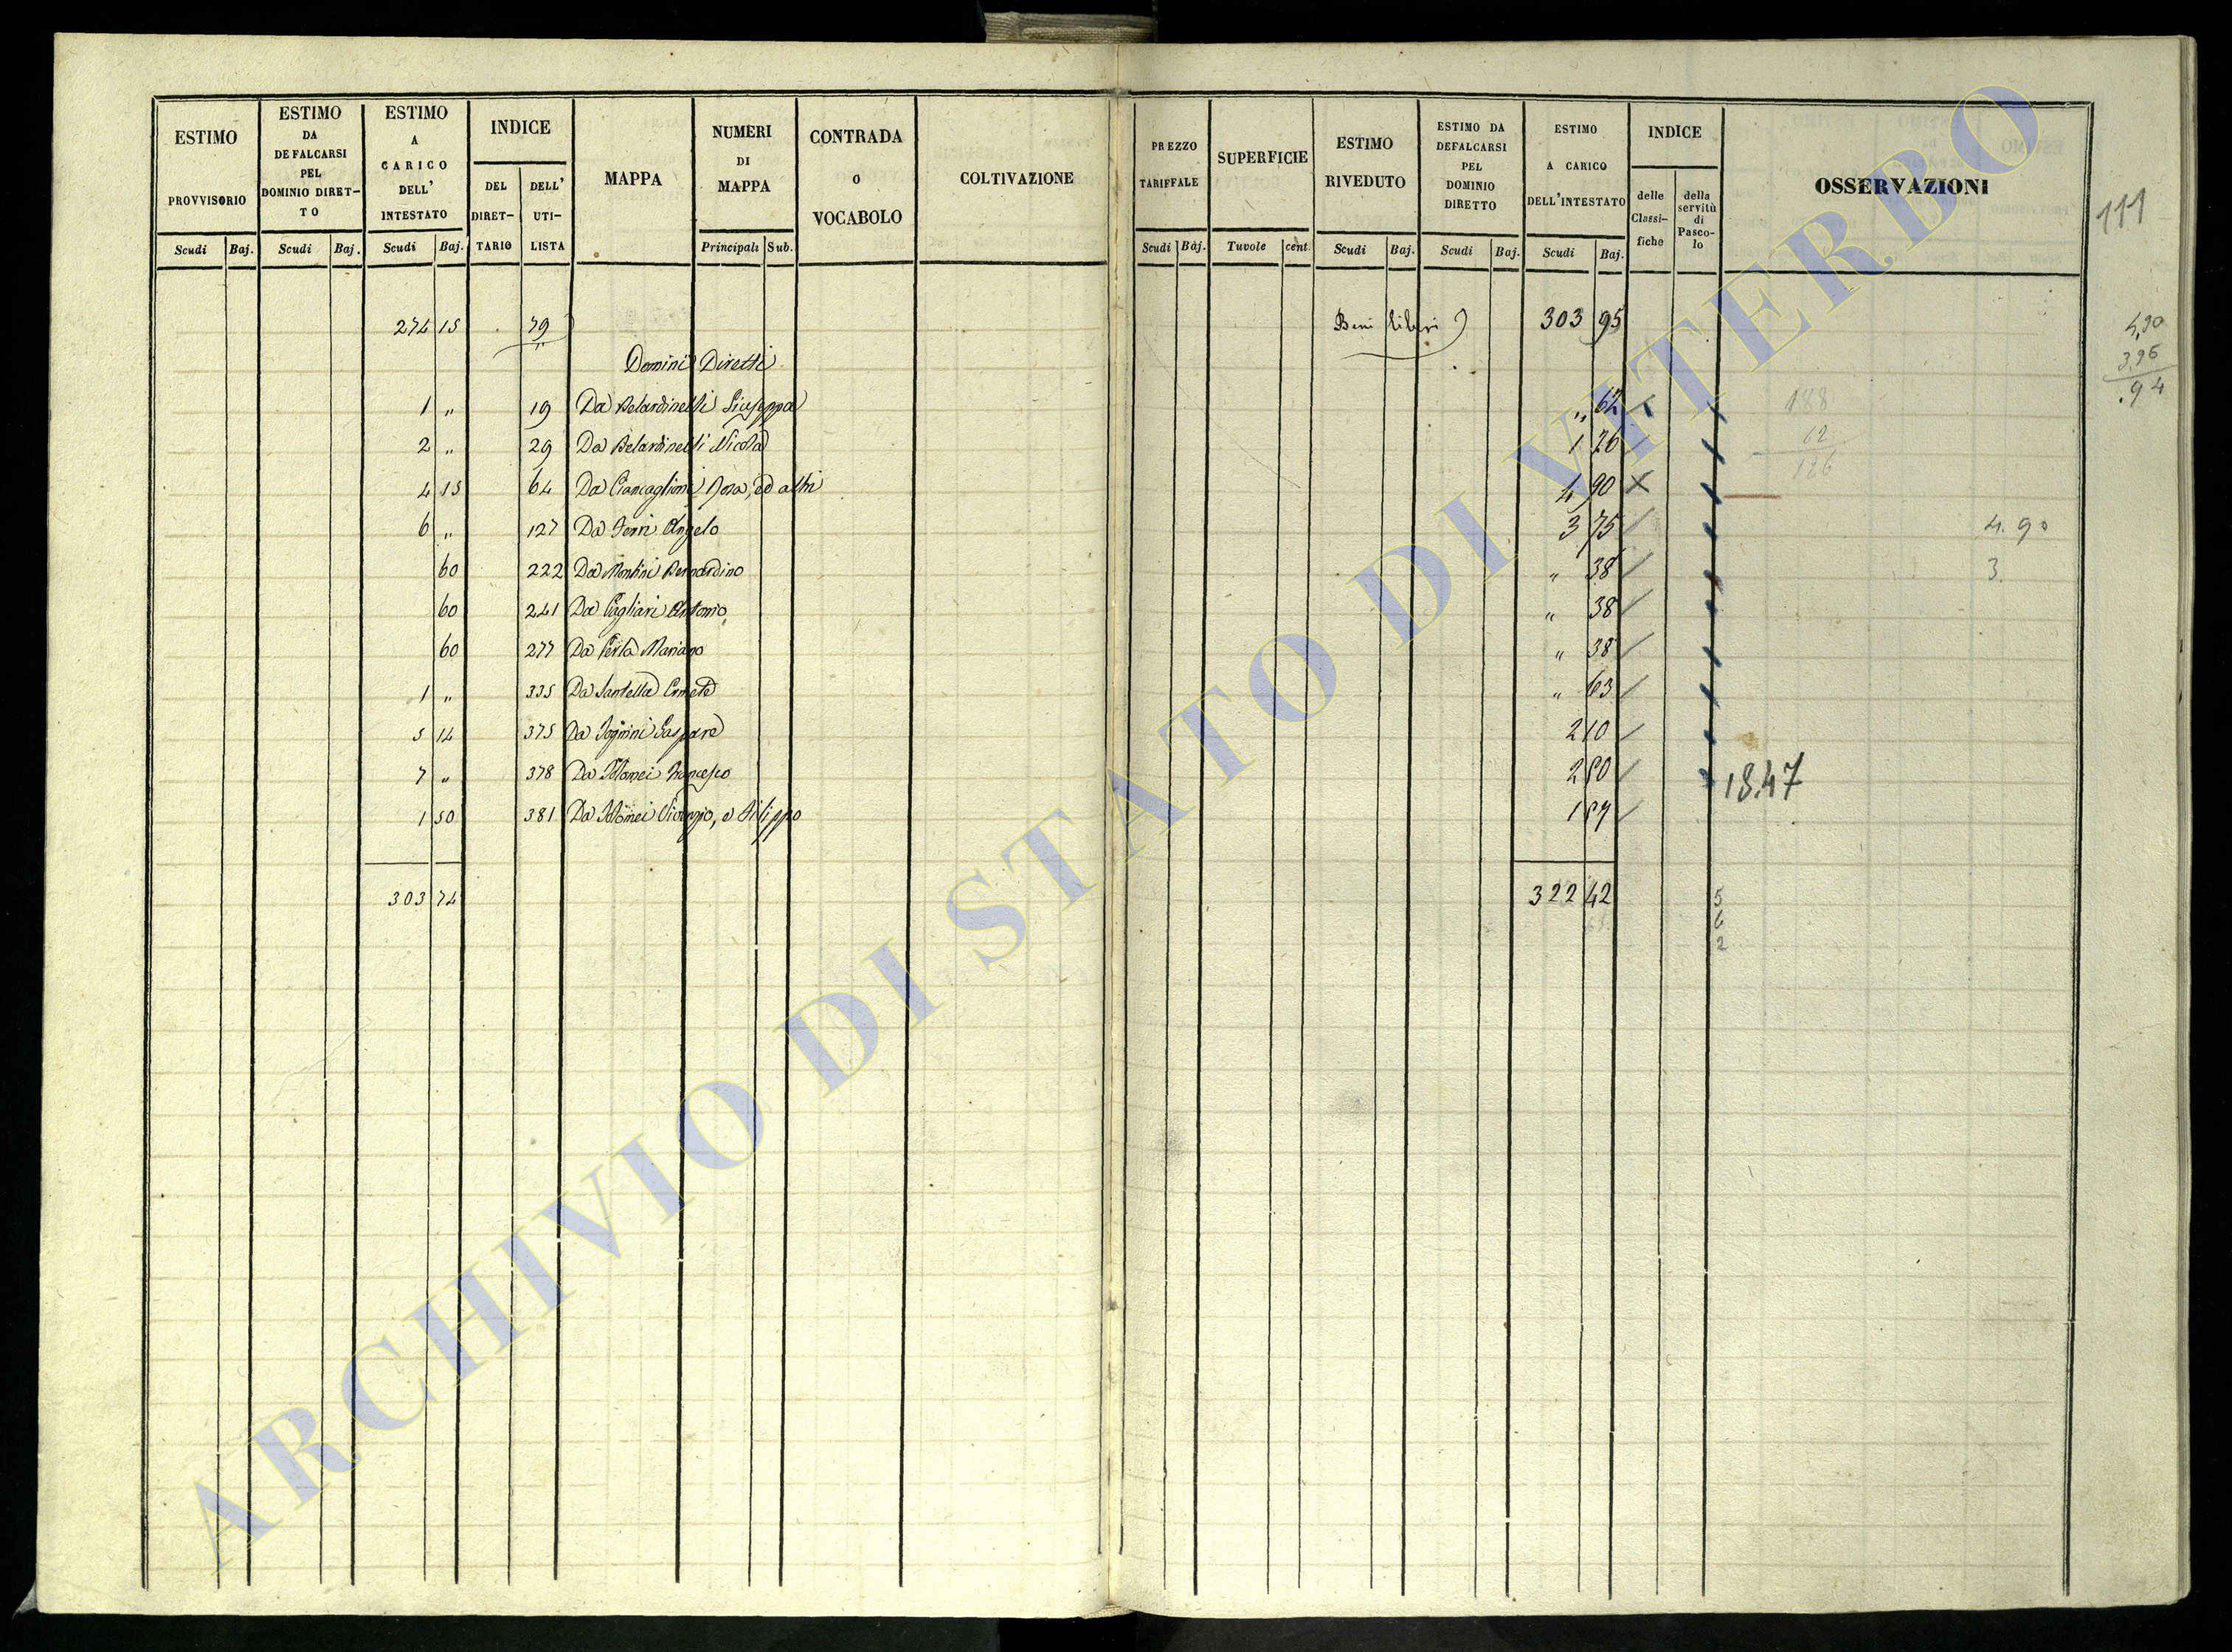 ESTIMO PROVVISORIO Scudi Baj.
ESTIMO DA DEFALCARSI PEL DOMINIO DIRET-TO Scudi Baj.
ESTIMO A CARICO DELL' INTESTATO Scudi Baj.
INDICE DEL DIRET-TARIO DELL' UTI-LISTA
MAPPA
NUMERI DI MAPPA Principali Sub.
CONTRADA O VOCABOLO
COLTIVAZIONE
PREZZO TARIFFALE Scudi Baj.
SUPERFICIE Tavole cent
ESTIMO RIVEDUTO Scudi Baj.
ESTIMO DA DEFALCARSI PEL DOMINIO DIRETTO Scudi Baj.
ESTIMO A CARICO DELL'INTESTATO Scudi Baj.
INDICE delle Classi-fiche della servitù di Pasco-lo
OSSERVAZIONI
111
274 15 79 Beni liberi 303 95
Domini Diretti
1 " 19 Da Belardinelli Giuseppa " 62
2 " 29 Da Belardinelli Nicola 1 26
4 15 64 Da Ciancaglioni Rosa, ed altri 4 90
6 " 127 Da Ferri Angelo 3 75
60 222 Da Montini Bernardino " 38
60 241 Da Pagliari Antonio " 38
60 277 Da Perla Mariano " 38
1 " 335 Da Santella " 63
5 14 375 Da Gaspare 2 10
7 " 378 Da Francesco 2 50
1 50 381 Da e Filippo 1 57
303 74 322 42
188
62
126
4.90
3.96
.94
4.90
3.
18.47
5
6
2
ARCHIVIO DI STATO DI VITERBO